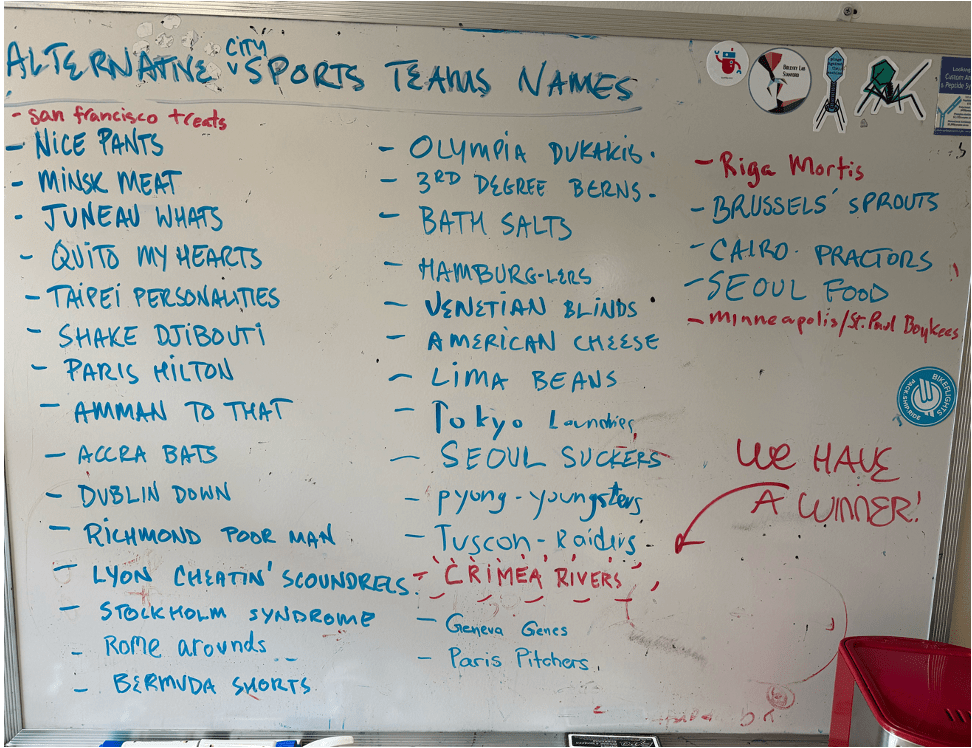 ALTERNATIVE CITY SPORTS TEAMS NAMES
- san francisco treats
- NICE PANTS
- MINSK MEAT
- JUNEAU WHATS
- QUITO MY HEARTS
- TAIPEI PERSONALITIES
- SHAKE DJIBOUTI
- PARIS HILTON
- AMMAN TO THAT
- ACCRA BATS
- DUBLIN DOWN
- RICHMOND POOR MAN
- LYON CHEATIN' SCOUNDRELS
- STOCKHOLM SYNDROME
- ROME arounds
- BERMUDA SHORTS
- OLYMPIA DUKAKIS.
- 3RD DEGREE BERNS.
- BATH SALTS
- HAMBURG-LERS
- VENETIAN BLINDS
- AMERICAN CHEESE
- LIMA BEANS
- Tokyo Laundries
- SEOUL SUCKERS
- pyong-youngsters
- Tuscon-Raiders
- CRIMEA RIVERS
- Geneva Genes
- Paris Pitchers
- Riga Mortis
- BRUSSELS' SPROUTS
- CAIRO-PRACTORS
- SEOUL FOOD
- Minneapolis/St. Paul Boykees
WE HAVE
A WINNER!
BIKEFLIGHTS
PACK.SHIP.RIDE